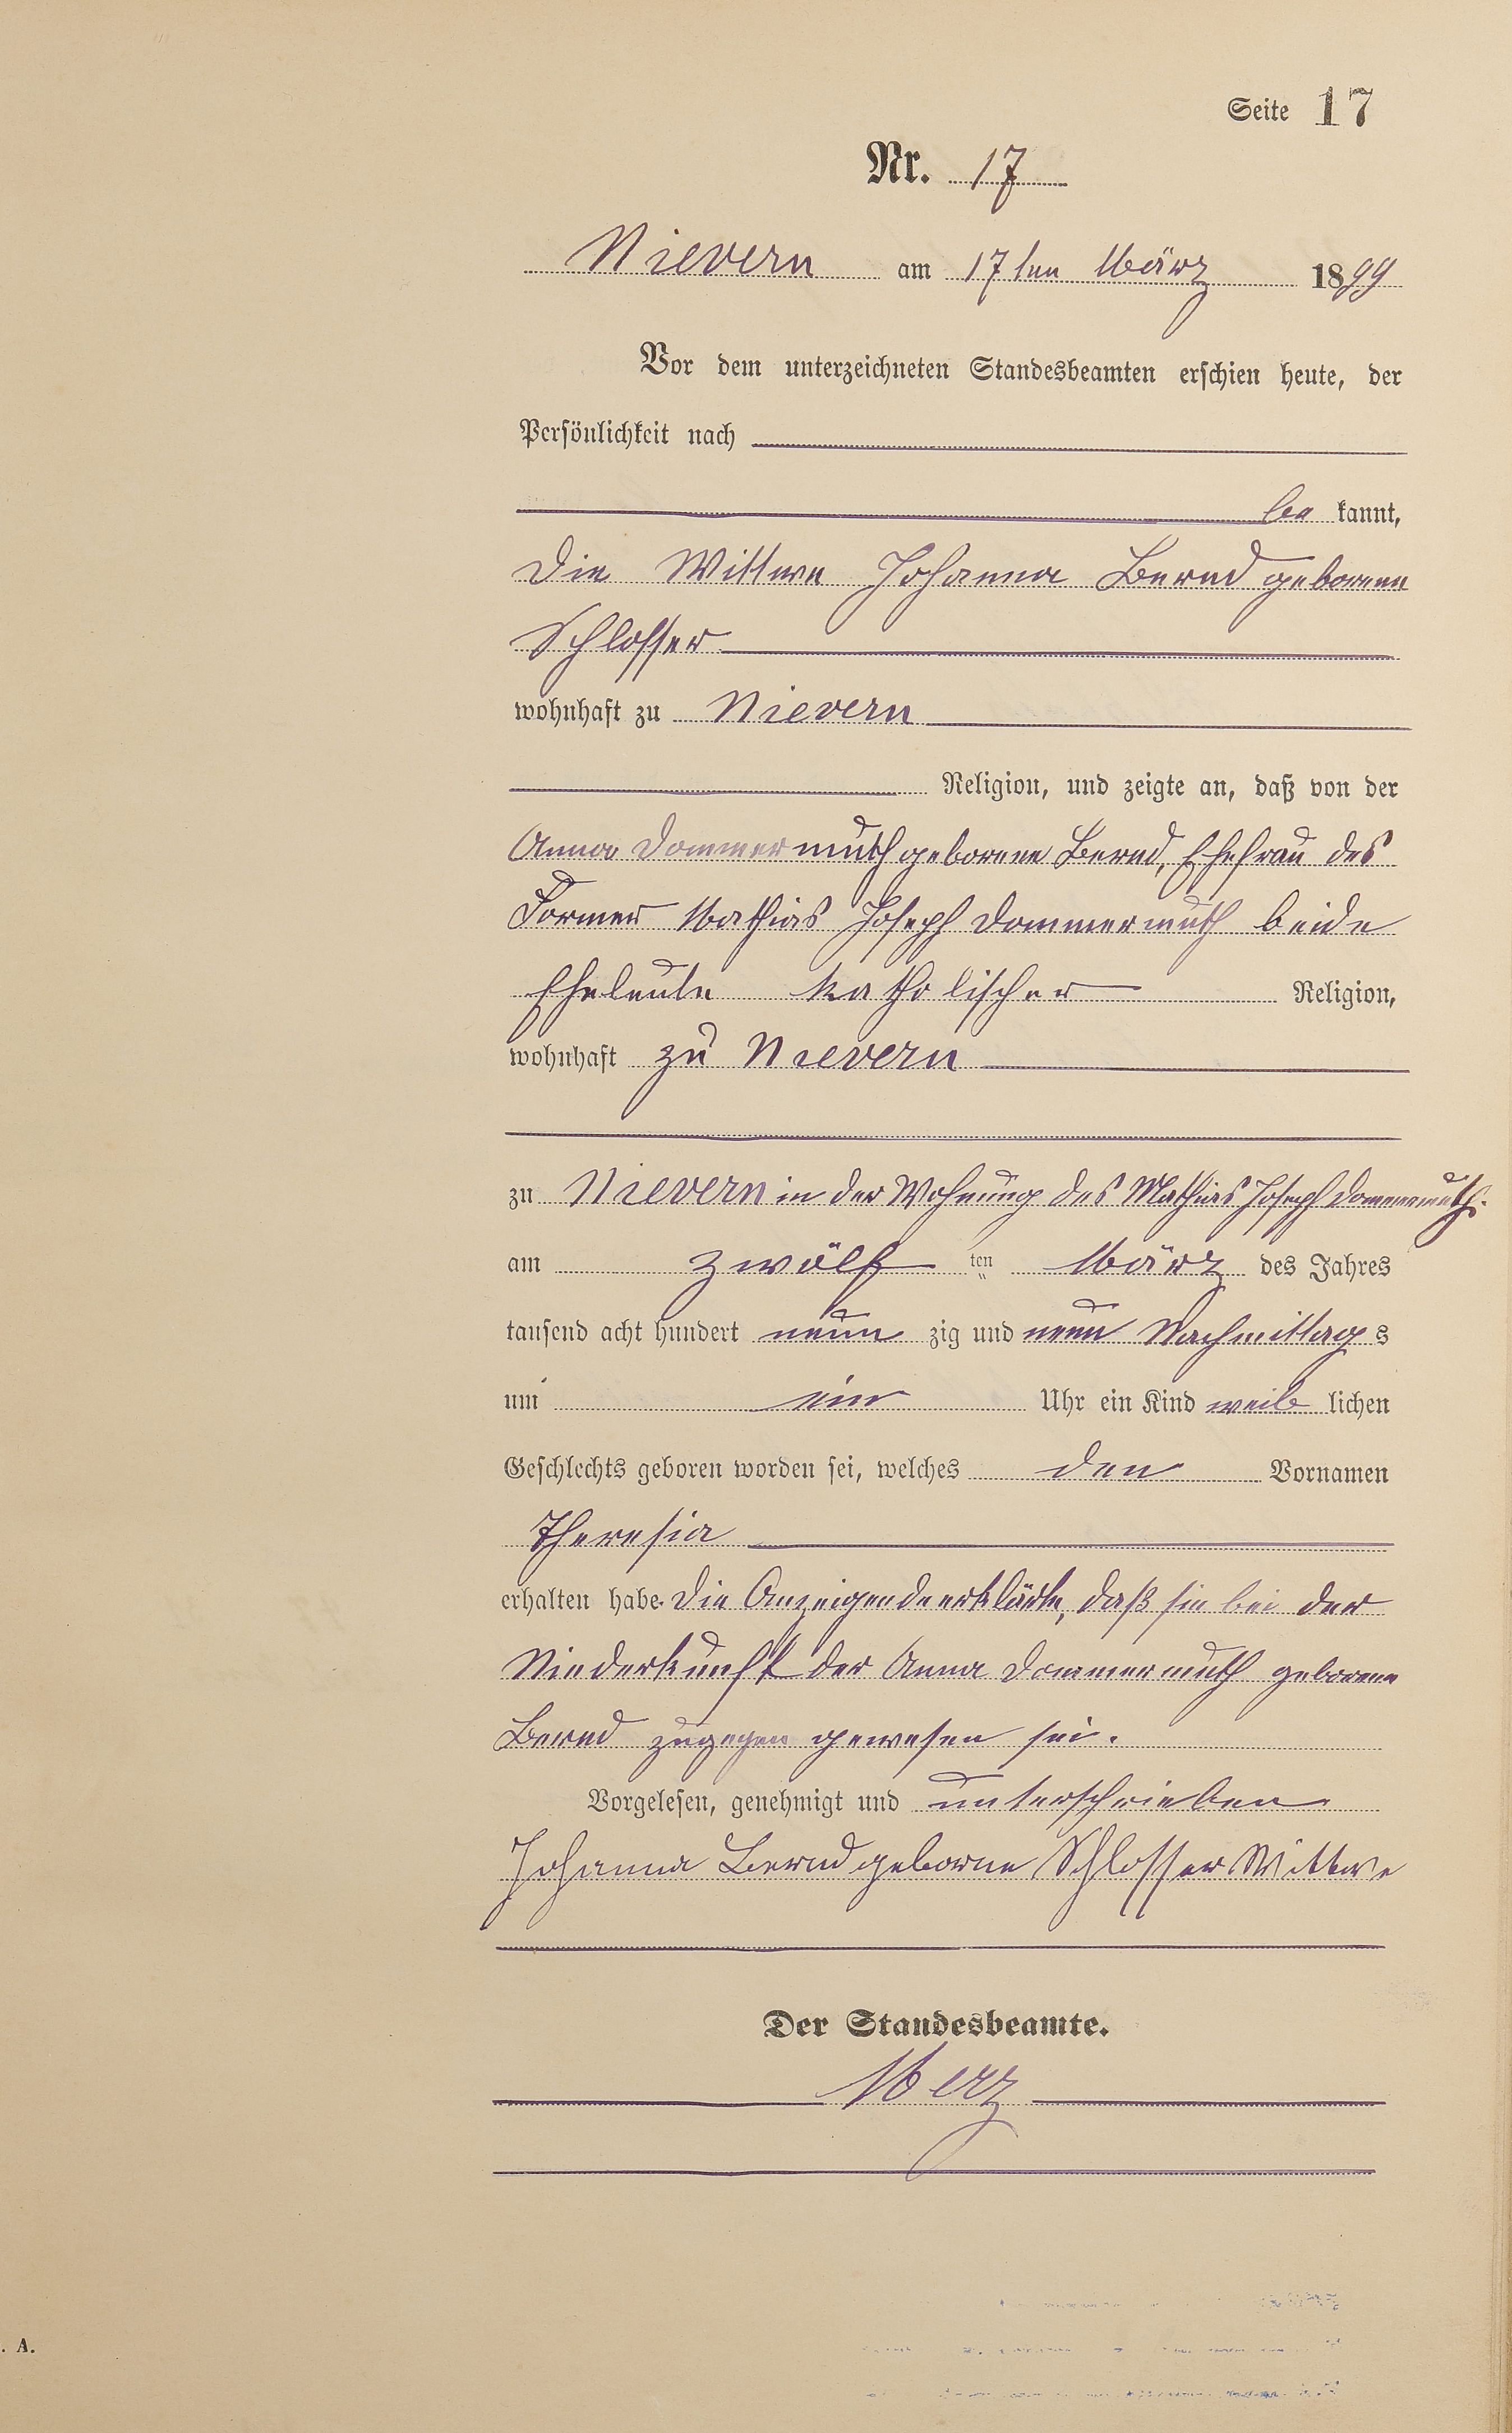 Seite 17
Nr. 17
Nievern am 17ten März 1899
Vor dem unterzeichneten Standesbeamten erschien heute, der
Persönlichkeit nach
be kannt,
die Wittwe Johanna Bernd geborene
Schlosser
wohnhaft zu Nievern
Religion, und zeigte an, daß von der
Anna Dommermuth geborene Bernd, Ehefrau des
Former Mathias Joseph Dommermuth beide
Eheleute katholischer Religion,
wohnhaft zu Nievern
zu Nievern in der Wohnung des Mathias Joseph Dommermuth.
am zwölf ten März des Jahres
tausend acht hundert neun zig und neun Nachmittag s
um ein Uhr ein Kind weib lichen
Geschlechts geboren worden sei, welches den Vornamen
Theresia
erhalten habe. Die Anzeigende erklärte, daß sie bei der
Niederkunft der Anna Dommermuth geborene
Bernd zugegen gewesen sei.
Vorgelesen, genehmigt und unterschrieben
Johanna Bernd geborne Schlosser Wittwe
Der Standesbeamte.
Merz
. A.